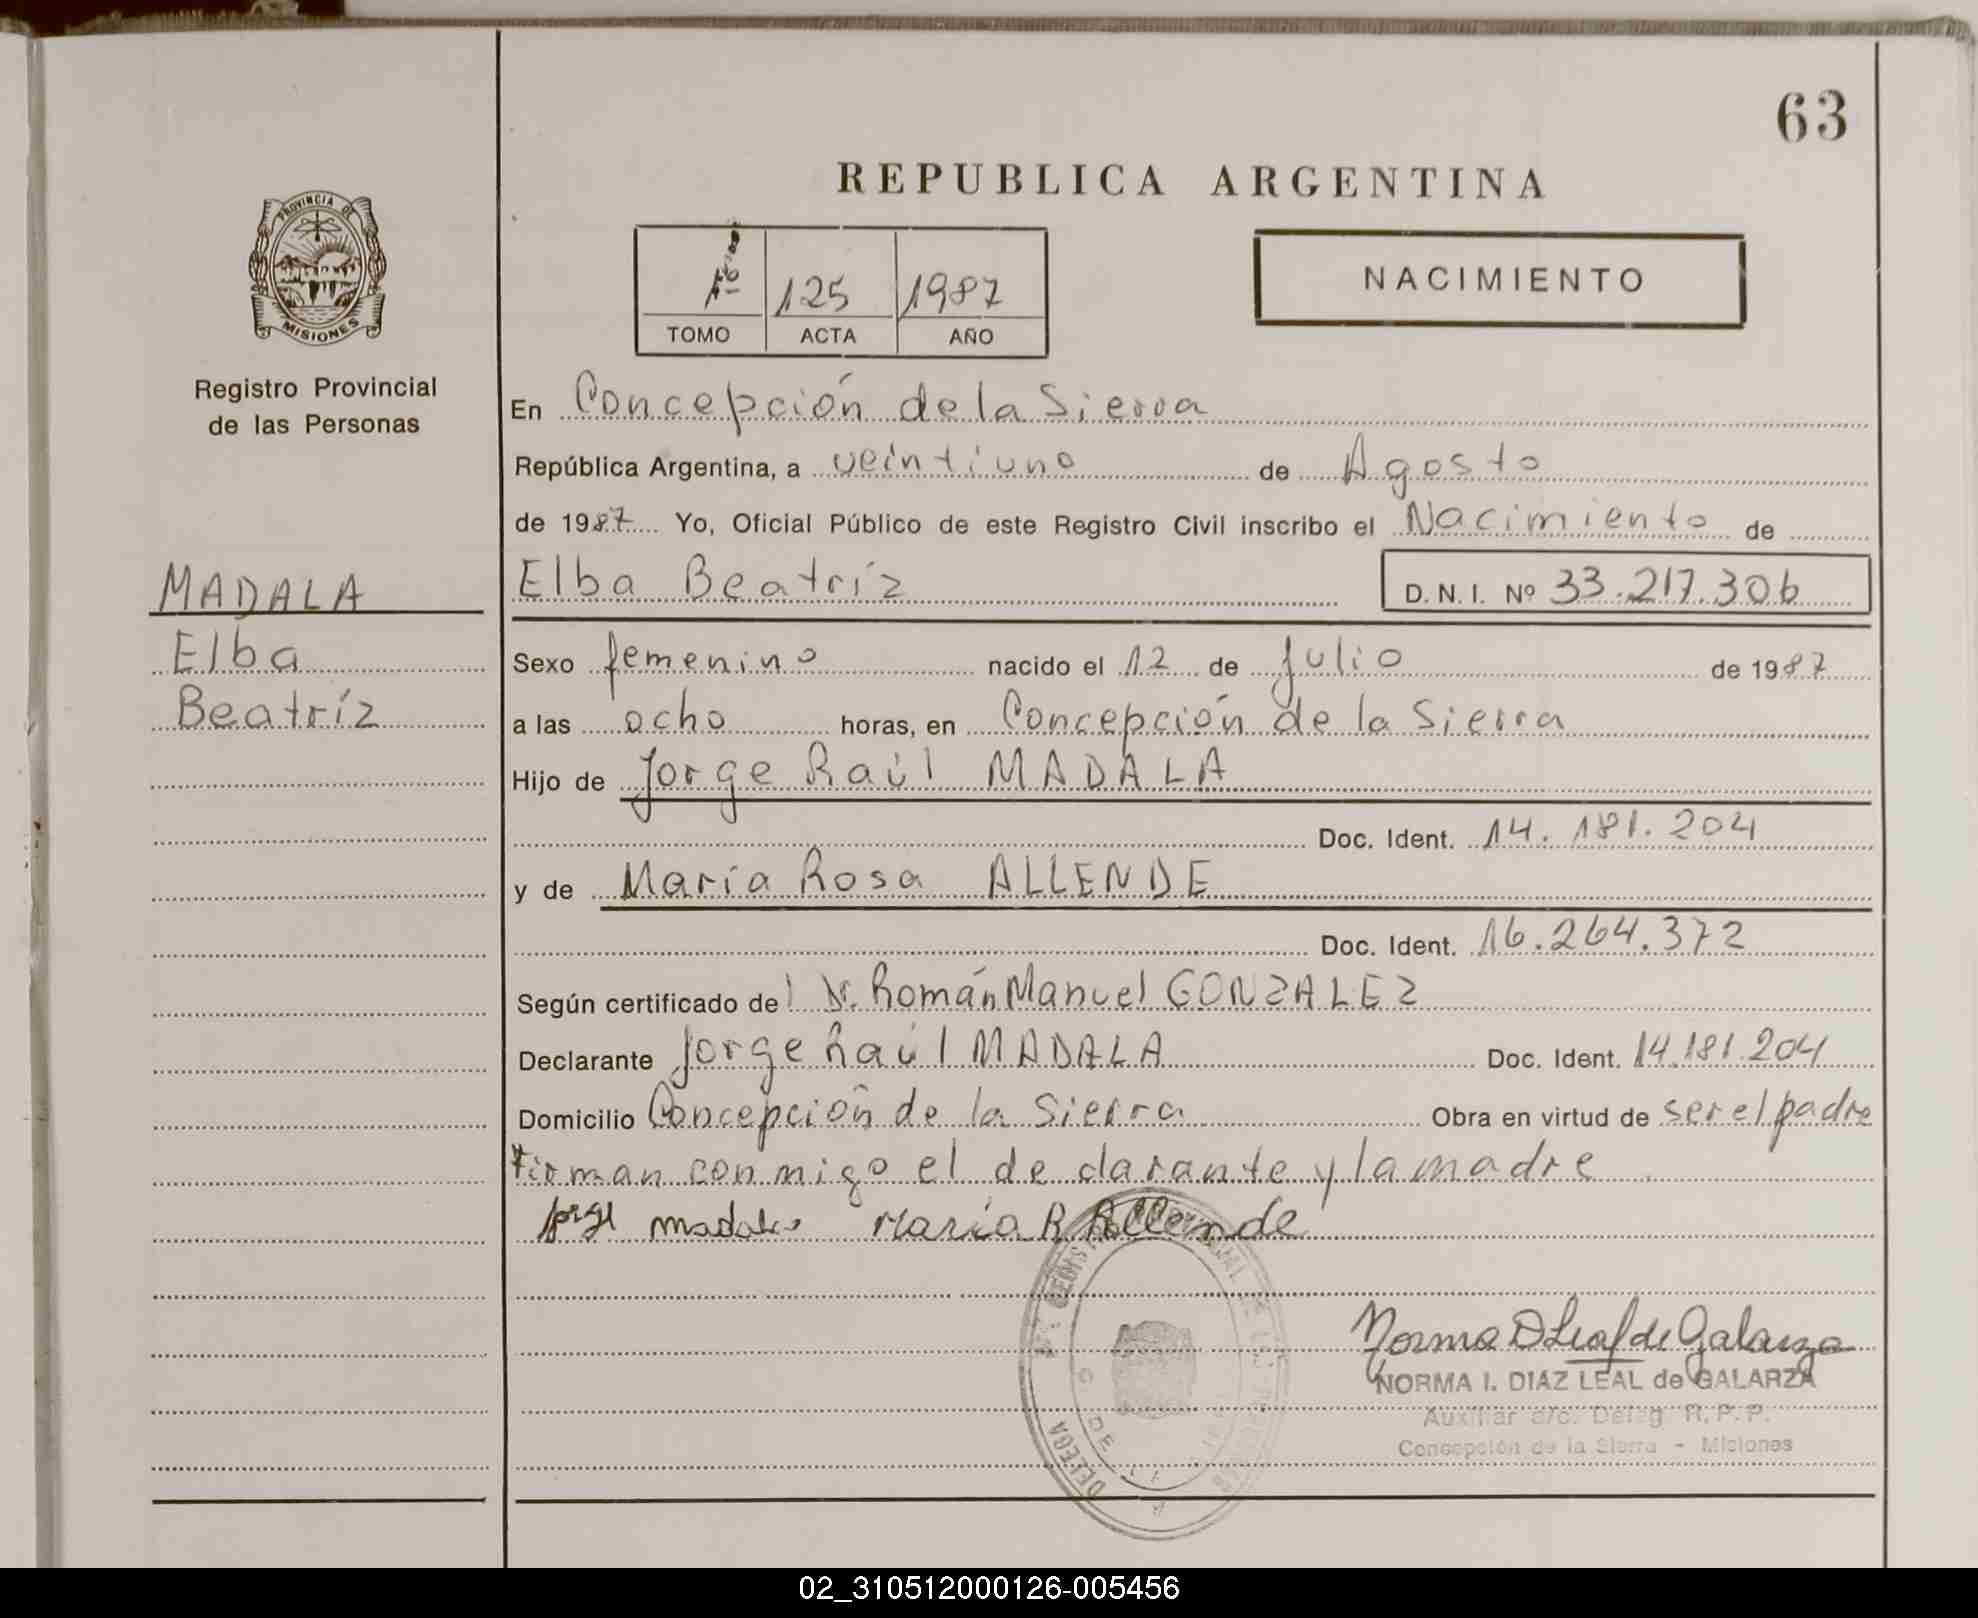 63
REPUBLICA ARGENTINA
PROVINCIA DE
MISIONES
Registro Provincial
de las Personas
1º 125 1987
TOMO ACTA AÑO
NACIMIENTO
En Concepción de la Sierra
República Argentina, a veintiuno de Agosto
de 1987 Yo, Oficial Público de este Registro Civil inscribo el Nacimiento de
MADALA
Elba
Beatríz
Elba Beatríz D.N.I. Nº 33.217.306
Sexo femenino nacido el 12 de Julio de 1987
a las ocho horas, en Concepción de la Sierra
Hijo de Jorge Raúl MADALA
Doc. Ident. 14.181.204
y de María Rosa ALLENDE
Doc. Ident. 16.264.372
Según certificado del Dr. Román Manuel GONZALEZ
Declarante Jorge Raúl MADALA Doc. Ident. 14.181.204
Domicilio Concepción de la Sierra Obra en virtud de ser el padre
Firman conmigo el declarante y la madre
Jorge Madala María R Allende
Norma D Leal de Galarza
NORMA I. DIAZ LEAL de GALARZA
Auxiliar a/c. Deleg. R.P.P.
Concepción de la Sierra - Misiones
02_310512000126-005456